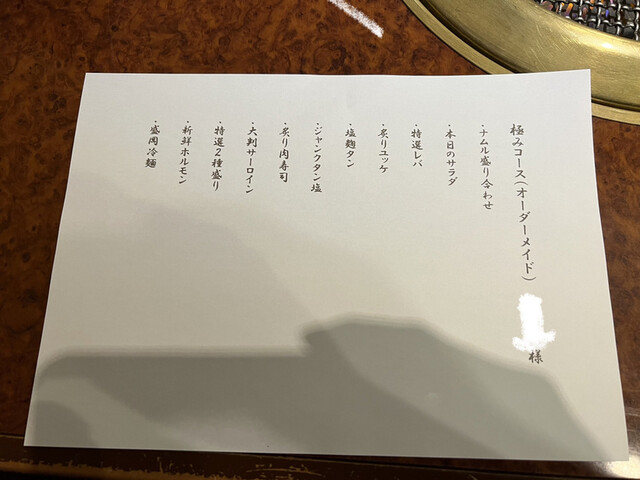 極みコース（オーダーメイド） 様
・ナムル盛り合わせ
・本日のサラダ
・特選レバ
・炙りユッケ
・塩麹タン
・ジャンクタン塩
・炙り肉寿司
・大判サーロイン
・特選２種盛り
・新鮮ホルモン
・盛岡冷麺